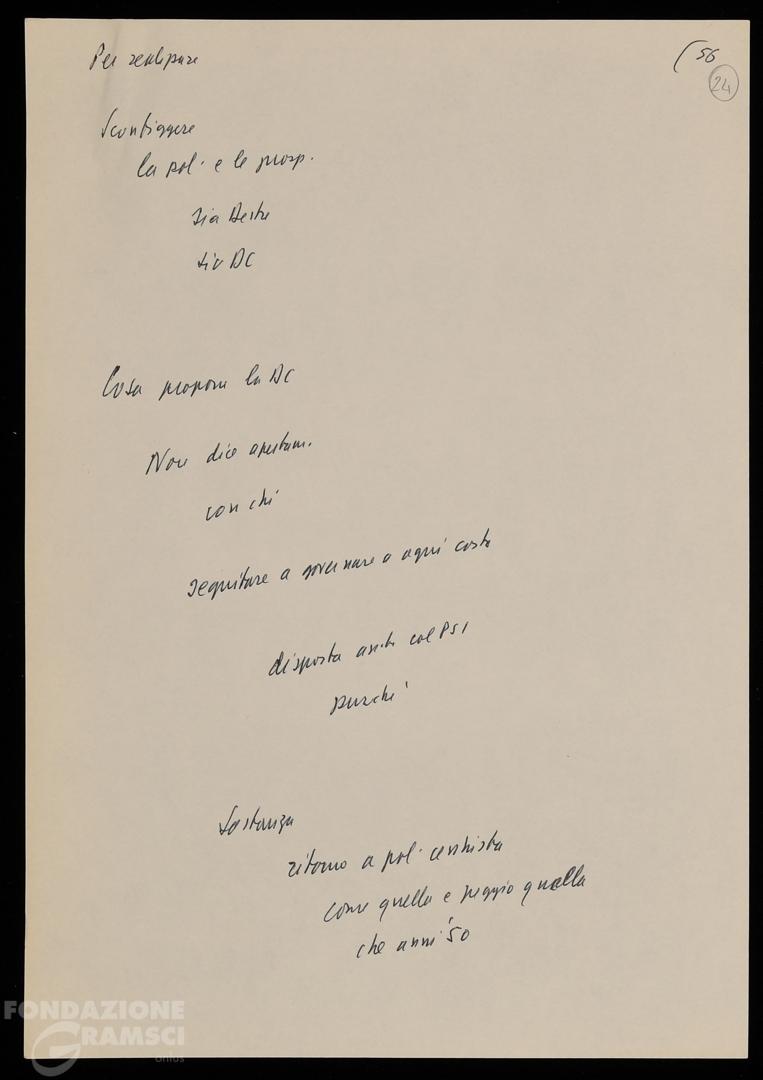 Per realizzare
(56
24
Sconfiggere
la pol. e le prosp.
sia Destre
sia DC
Cosa propone la DC
Non dice apertam.
con chi
seguitare a governare a ogni costo
disposta anche col PSI
purché
Sostanza
ritorno a pol. centrista
come quella e peggio quella
che anni '50
FONDAZIONE
GRAMSCI
onlus